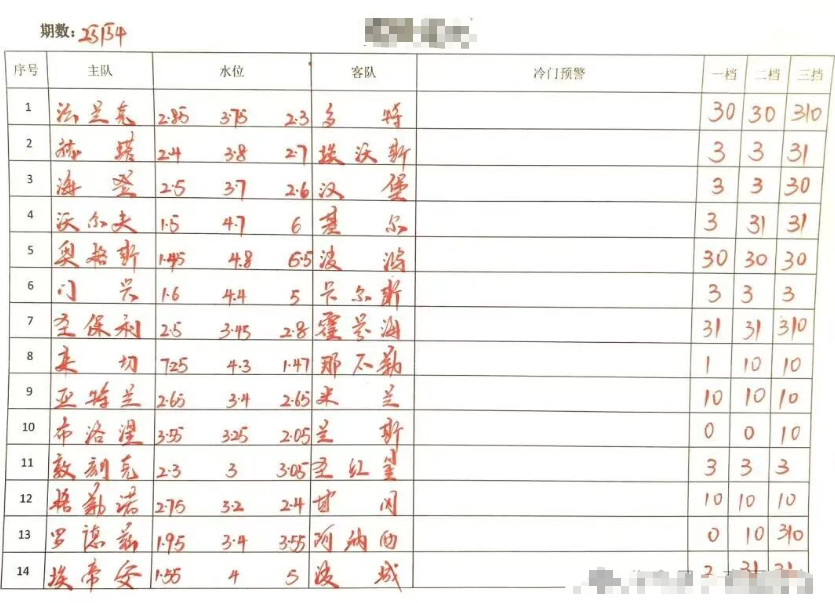 期数: 25154
序号 主队 水位 客队 冷门预警 一档 二档 三档
1 法兰克 2.85 3.75 2.3 多特 30 30 310
2 赫塔 2.4 3.8 2.7 埃沃斯 3 3 31
3 海登 2.5 3.7 2.6 汉堡 3 3 30
4 沃尔夫 1.5 4.7 6 基尔 3 31 31
5 奥格斯 1.45 4.8 6.5 波鸿 30 30 30
6 门兴 1.6 4.4 5 卡尔斯 3 3 3
7 圣保利 2.5 3.45 2.8 霍芬海 31 31 310
8 莱切 7.25 4.3 1.47 那不勒 1 10 10
9 亚特兰 2.65 3.4 2.65 米兰 10 10 10
10 布洛涅 3.55 3.25 2.05 兰斯 0 0 10
11 敦刻克 2.3 3 3.05 圣红星 3 3 3
12 格勒诺 2.75 3.2 2.4 甘冈 10 10 10
13 罗德兹 1.95 3.4 3.55 阿纳西 0 10 310
14 埃帝安 1.55 4 5 波城 31 31